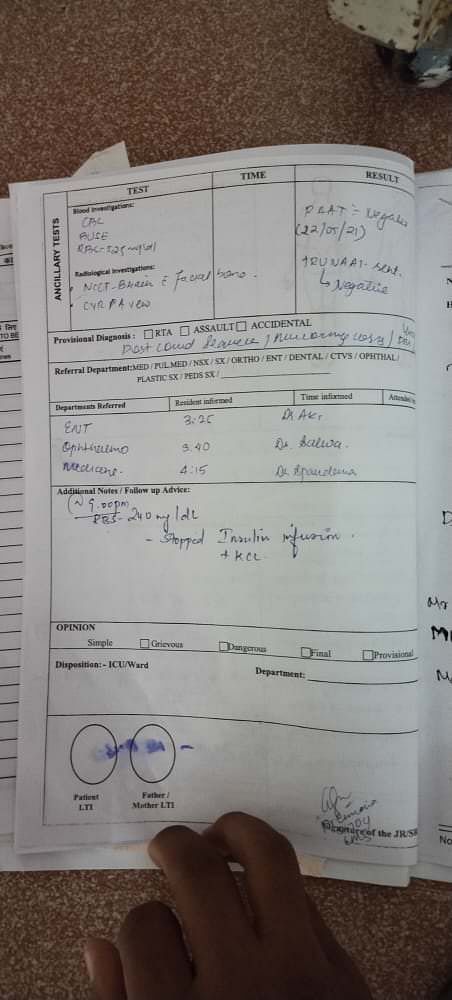 TEST TIME RESULT
ANCILLARY TESTS
Blood Investigations:
CBC
RUSE
RBS - 525 mg/dl
RAAT - Negative
(22/05/21)
TRUNAAT - sent.
↳ Negative
Radiological Investigations:
NCCT - Brain & Facial bone.
CXR PA view
Provisional Diagnosis : ☐ RTA ☐ ASSAULT ☐ ACCIDENTAL
Post covid Sequelae /
Referral Department:MED / PUL.MED / NSX / SX / ORTHO / ENT / DENTAL / CTVS / OPHTHAL /
PLASTIC SX / PEDS SX /
Departments Referred Resident informed Time informed Attended
ENT 3:25
Ophthalmo 3.40 Dr. Salwa.
Medicine. 4:15 Dr.
Additional Notes / Follow up Advice:
~ 9.00pm
RBS - 240 mg/dl
- Stopped Insulin infusion.
+ KCl.
OPINION
Simple ☐ Grievous ☐ Dangerous ☐ Final ☐ Provisional
Disposition: - ICU/Ward
Department:
Patient
LTI
Father /
Mother LTI
of the JR/SR